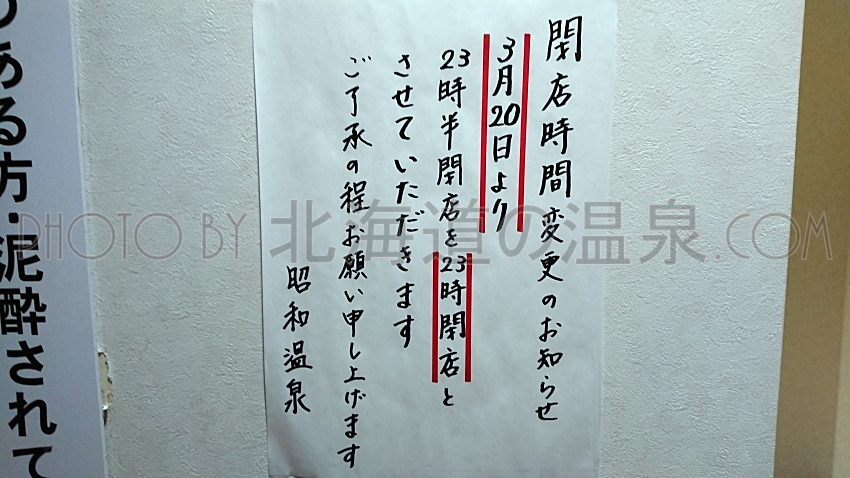 閉店時間変更のお知らせ
3月20日より
23時半閉店を23時閉店と
させていただきます
ご了承の程お願い申し上げます
昭和温泉
のある方・泥酔されて
PHOTO BY 北海道の温泉.COM